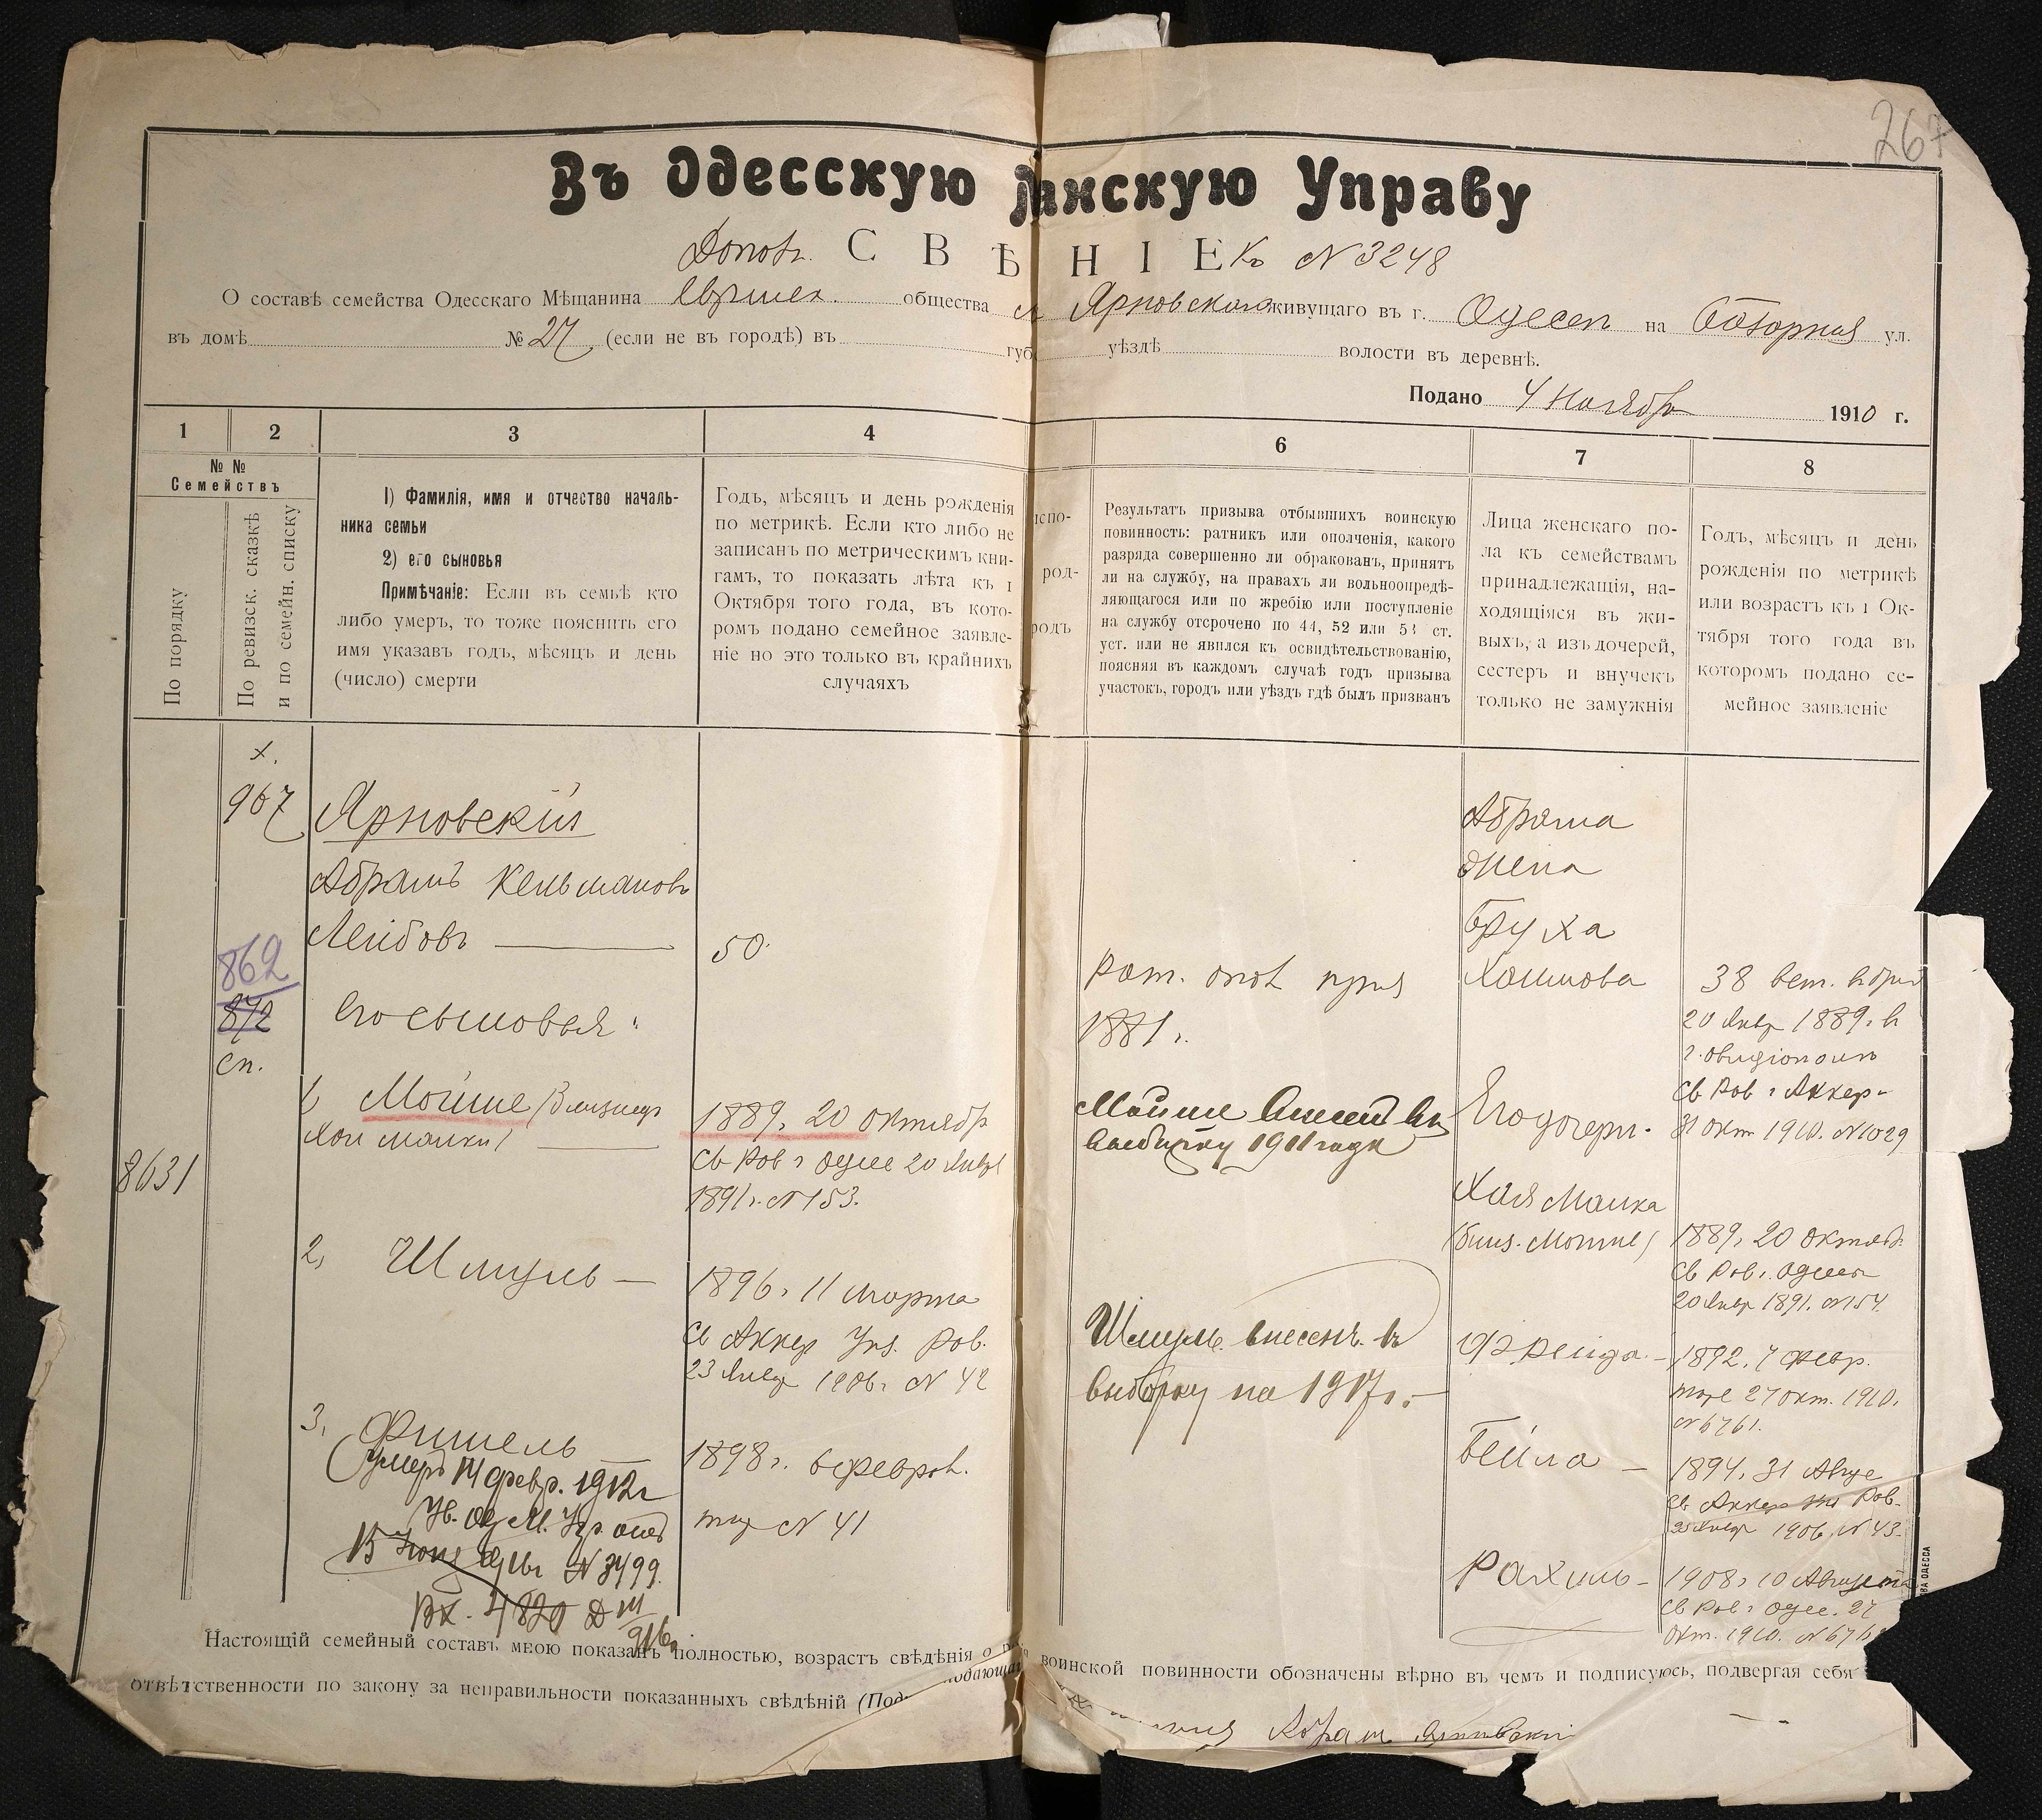 267
Въ Одесскую нскую Управу
Дополн. С В Ѣ Н І Е Къ № 3248
О составѣ семейства Одесскаго Мѣщанина Еврейск. общества Ярновскаго живущаго въ г. Одессѣ на ул.
въ домѣ № 27 (если не въ городѣ) въ губ уѣздѣ волости въ деревнѣ.
Подано 4 Ноября 1910 г.
1 2 3 4 6 7 8
№ №
Семействъ
По порядку
По ревизск. сказкѣ
и по семейн. списку
1) Фамилія, имя и отчество началь-
ника семьи
2) его сыновья
Примѣчаніе: Если въ семьѣ кто
либо умеръ, то тоже пояснить его
имя указавъ годъ, мѣсяцъ и день
(число) смерти
Годъ, мѣсяцъ и день рожденія
по метрикѣ. Если кто либо не
записанъ по метрическимъ кни-
гамъ, то показать лѣта къ 1
Октября того года, въ кото-
ромъ подано семейное заявле-
ніе но это только въ крайнихъ
случаяхъ
спо-
род-
родъ
Результатъ призыва отбывшихъ воинскую
повинность: ратникъ или ополченія, какого
разряда совершенно ли обракованъ, принятъ
ли на службу, на правахъ ли вольноопредѣ-
ляющагося или по жребію или поступленіе
на службу отсрочено по 44, 52 или 53 ст.
уст. или не явился къ освидѣтельствованію,
поясняя въ каждомъ случаѣ годъ призыва
участокъ, городъ или уѣздъ гдѣ былъ призванъ
Лица женскаго по-
ла къ семействамъ
принадлежащія, на-
ходящіяся въ жи-
выхъ, а изъ дочерей,
сестеръ и внучекъ
только не замужнія
Годъ, мѣсяцъ и день
рожденія по метрикѣ
или возрастъ къ 1 Ок-
тября того года въ
котором подано се-
мейное заявленіе
х.
967
862
872
сп.
8631
Ярновскій
Абрамъ Кельмановъ
Лейбовъ
Его сыновья:
1) Мойше (близнецъ
Хаи Малки)
2, Шмуль —
3, Фишель
(Умеръ 14 февр. 1912 г
№ 3499.
Вх. 4820
50
1889, 20 октября
Св Рав г Одес 20 Янвр
1891 г. № 153.
1896 г. 11 марта
Св Аккер Рав.
23 Янвр 1906 г № 42
1898 г. 6 феврал.
тож № 41
рат. опол
1881 г.
Мойше внесенъ въ
выборку 1911 года
Шмуль внесенъ въ
выборку на 1917 г. —
Абрама
жена
Бруха
Хаимова
Его дочери.
Хая Малка
(близ. Мойше)
Фрейда —
Бейла —
Рахиль —
38
20 Янвр 1889 г. в
Св Рав г Аккер-
31 окт 1910. № 1029
1889, 20 октяб.
Св Рав г. Одессы
20 Янвр 1891. № 154.
1892, 7 февр.
тоже 27 окт. 1910.
№ 6761.
1894, 31 Авгус
Св Аккер Рав.
23 Янвр 1906, № 43.
1908 г 10 Августа
Св Рав г Одес. 27
Окт. 1910. № 676
ОДЕССА
Настоящій семейный составъ мною показанъ полностью, возрастъ свѣдѣнія о воинской повинности обозначены вѣрно въ чемъ и подписуюсь, подвергая себя
отвѣтственности по закону за неправильности показанныхъ свѣдѣній
Абрам Ярновскій